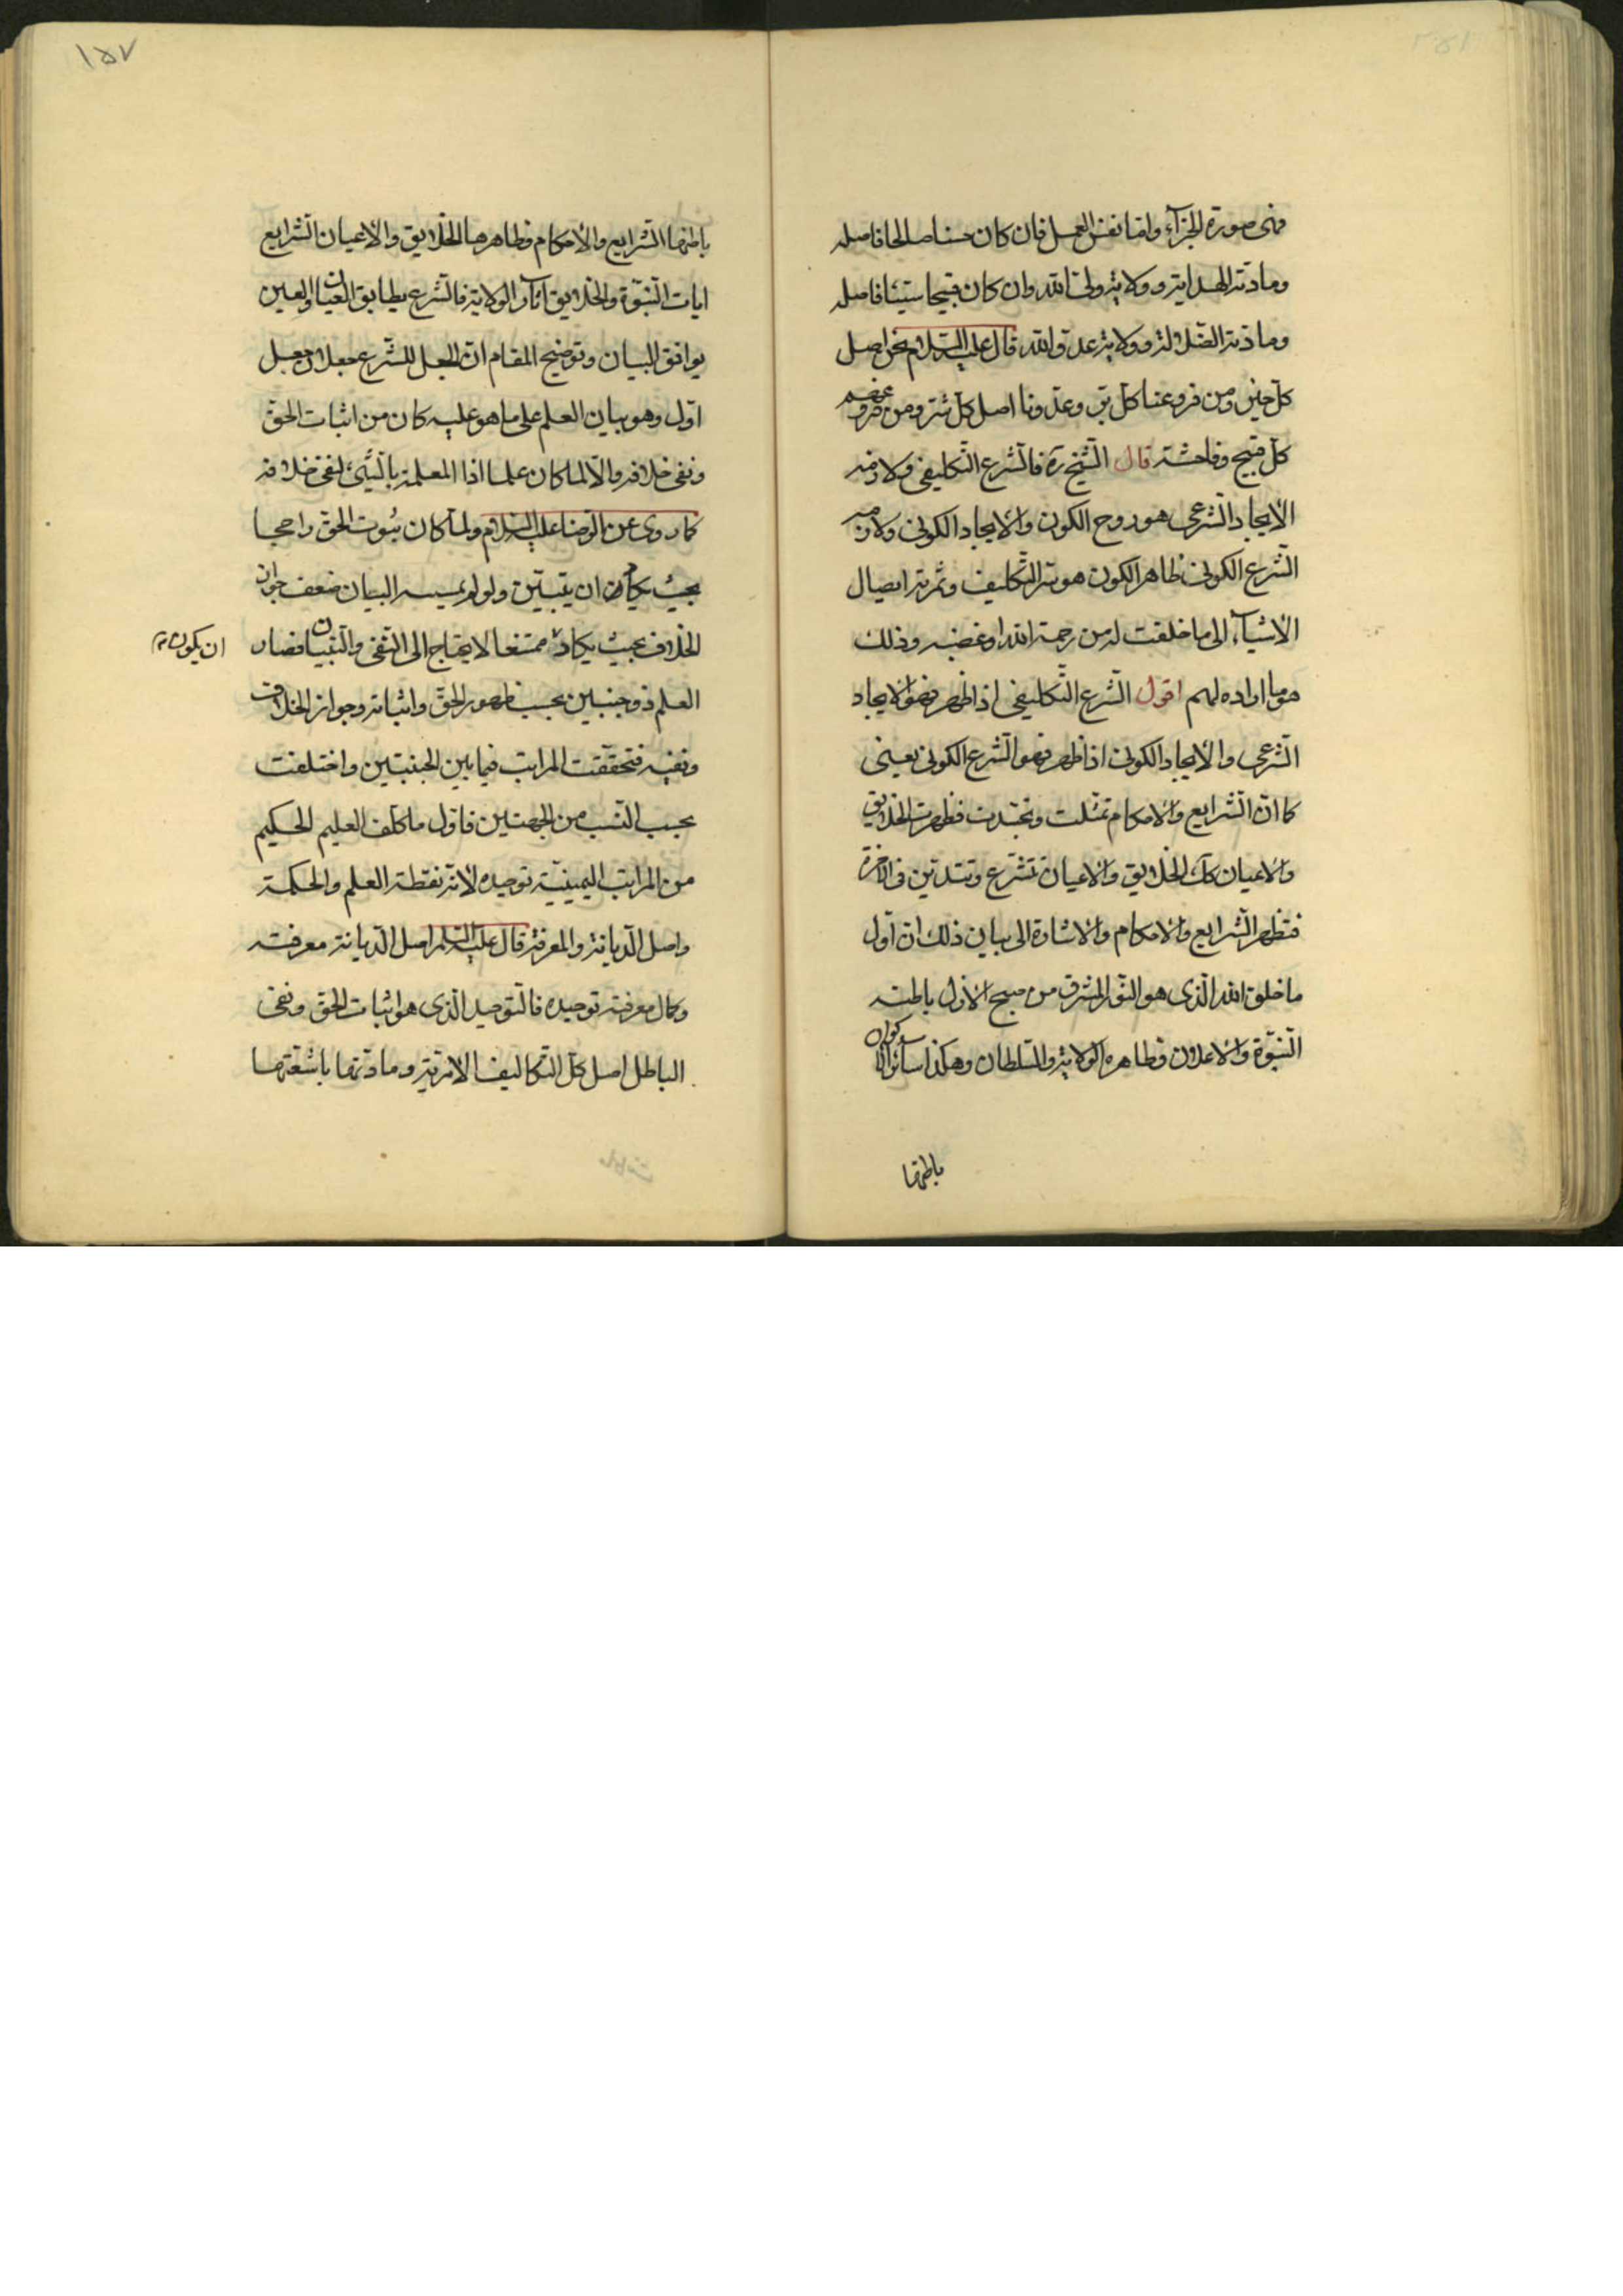 فهى صورة الجزآء واما نفس العمل فان كان حسنا صالحا فاصله
ومادته الهداية وولاية ولى الله وان كان قبيحا سيئا فاصله
ومادته الضلالة وولاية عدو الله قال عليه السلام نحن اصل
كل خير ومن فروعنا كل بر وعدونا اصل كل شر ومن فروعهم
كل قبيح وفاحشة قال الشيخ ره فالشرع التكليفى ولازمه
الايجاد الشرعى هو روح الكون والايجاد الكونى ولازمه
الشرع الكونى ظاهر الكون هو سر التكليف وثمرته ايصال
الاشيآء الى ما خلقت له من رحمة الله او غضبه وذلك
هو ما اراده لهم اقول الشرع التكليفى اذا ظهر فهو الايجاد
الشرعى والايجاد الكونى اذا ظهر فهو الشرع الكونى يعنى
كما ان الشرايع والاحكام تمثلت وتجسدت فظهرت الخلايق
والاعيان كك الخلايق والاعيان تتشرع وتتدين فى الآخرة
فتظهر الشرايع والاحكام والاشارة الى بيان ذلك ان اول
ما خلق الله الذى هو النور المشرق من صبح الازل باطنه
النبوة والاعلان وظاهره الولاية والسلطان وهكذا سائر الاكوان
باطنها
١٥٧
باطنها الشرايع والاحكام وظاهرها الخلايق والاعيان الشرايع
ايات النبوة والخلايق اثار الولاية فالشرع يطابق العيان والعين
يوافق البيان وتوضيح المقام ان الجعل للشرع جعلان جعل
اول وهو بيان العلم على ما هو عليه كان من اثبات الحق
ونفى خلافه والا لما كان علما اذا المعلمة بالشىء لنفى خلافه
كما روى عن الرضا عليه السلام ولما كان ثبوت الحق راجحا
بحيث يكاد ان يتبين ولو لم يمسسه البيان ضعف جواز
الخلاف بحيث يكاد ممتنعا لا يحتاج الى النفى والتبيان فصار
ان يكون
العلم ذو جنبين بحسب ظهور الحق واثباته وجواز الخلاف
ونفيه فتحققت المراتب فيما بين الجنبتين واختلفت
بحسب النسب من الجهتين فاول ما كلف العليم الحكيم
من المراتب اليمينية توحيده لانه نقطة العلم والحكمة
واصل الديانة والمعرفة قال عليه السلم اصل الديانة معرفته
وكمال معرفته توحيده فالتوحيد الذى هو اثبات الحق ونفى
الباطل اصل كل التكاليف الامرية ومادتها باشعتها